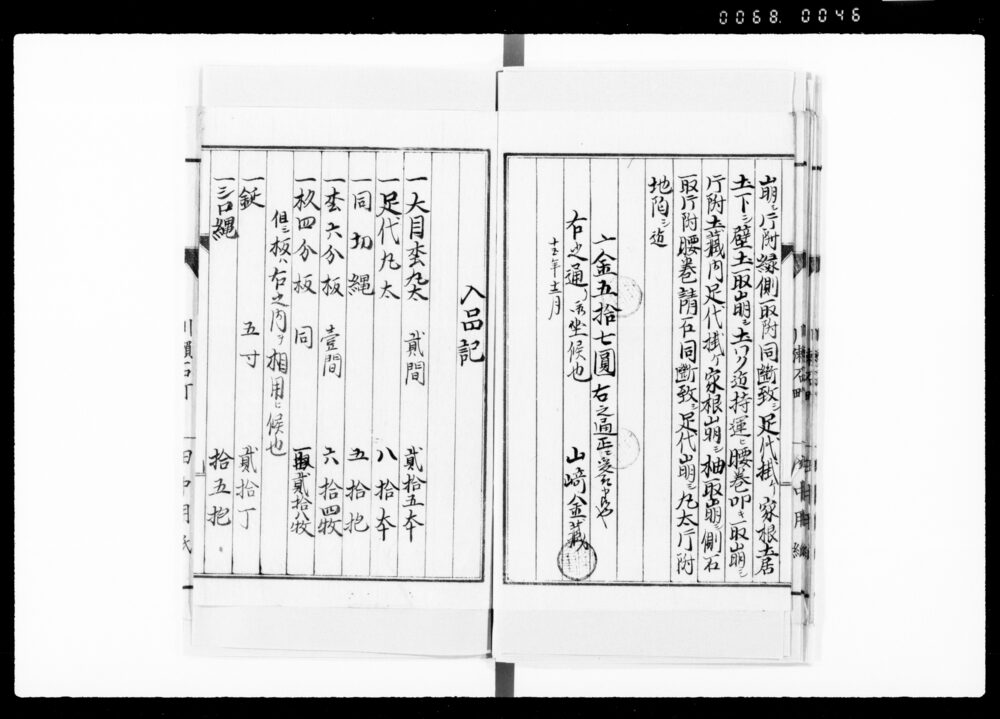 0068. 0046
崩シ庁附縁側取附同断致シ足代掛ケ家根土居
土下シ壁土取崩シ土ハク迠持運ヒ腰巻叩キ取崩シ
庁附土藏内足代掛ケ家根崩シ柚取崩シ側石
取庁附腰巻請石同断致シ足代崩シ丸太庁附
地陥シ迠
一金五拾七圓 右之通正ニ受
右之通ニ御坐候也
十五年十二月
山﨑金藏
入品記
一大目杢丸太 貳間 貳拾五本
一足代丸太 八拾本
一同切縄 五拾抱
一杢六分板 壹間 六拾四牧
一杦四分板 同 貳拾牧
但シ板ハ右之内ヲ相用ヒ候也
一鋌 五寸 貳拾丁
一三口縄 拾五抱